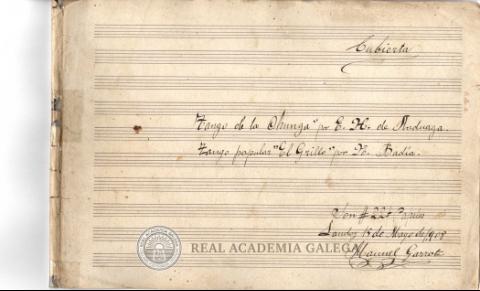 Cubierta
Tango de la Chunga" por E. H. de
Tango popular "El Grillo" por H. Badía.
Son
18 de Mayo de 1908
Manuel Garrote
REAL ACADEMIA GALEGA